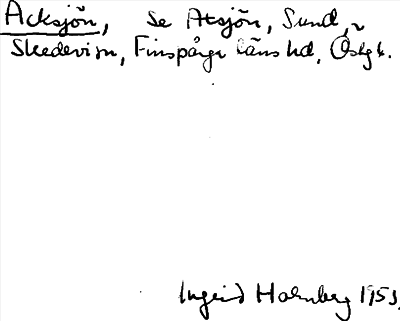 Acksjön, se Atsjön, Sund,
Skedevi sn, Finspånga läns hd, Östg l.
Ingrid Holmberg 1953.